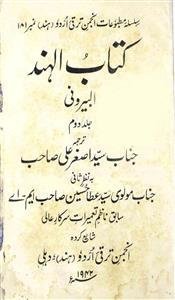 سلسلۂ مطبوعات انجمن ترقی اُردو (ہند) نمبر ۱۸۱
کتابُ الہند
البیرونی
جلد دوم
ترجمہ
جناب سید اصغر علی صاحب
بہ نظر ثانی
جناب مولوی سید عطا حسین صاحب ایم۔ اے
سابق ناظم تعمیرات سرکار عالی
شایع کردہ
انجمن ترقی اُردو (ہند)، دہلی
۱۹۴۲ء